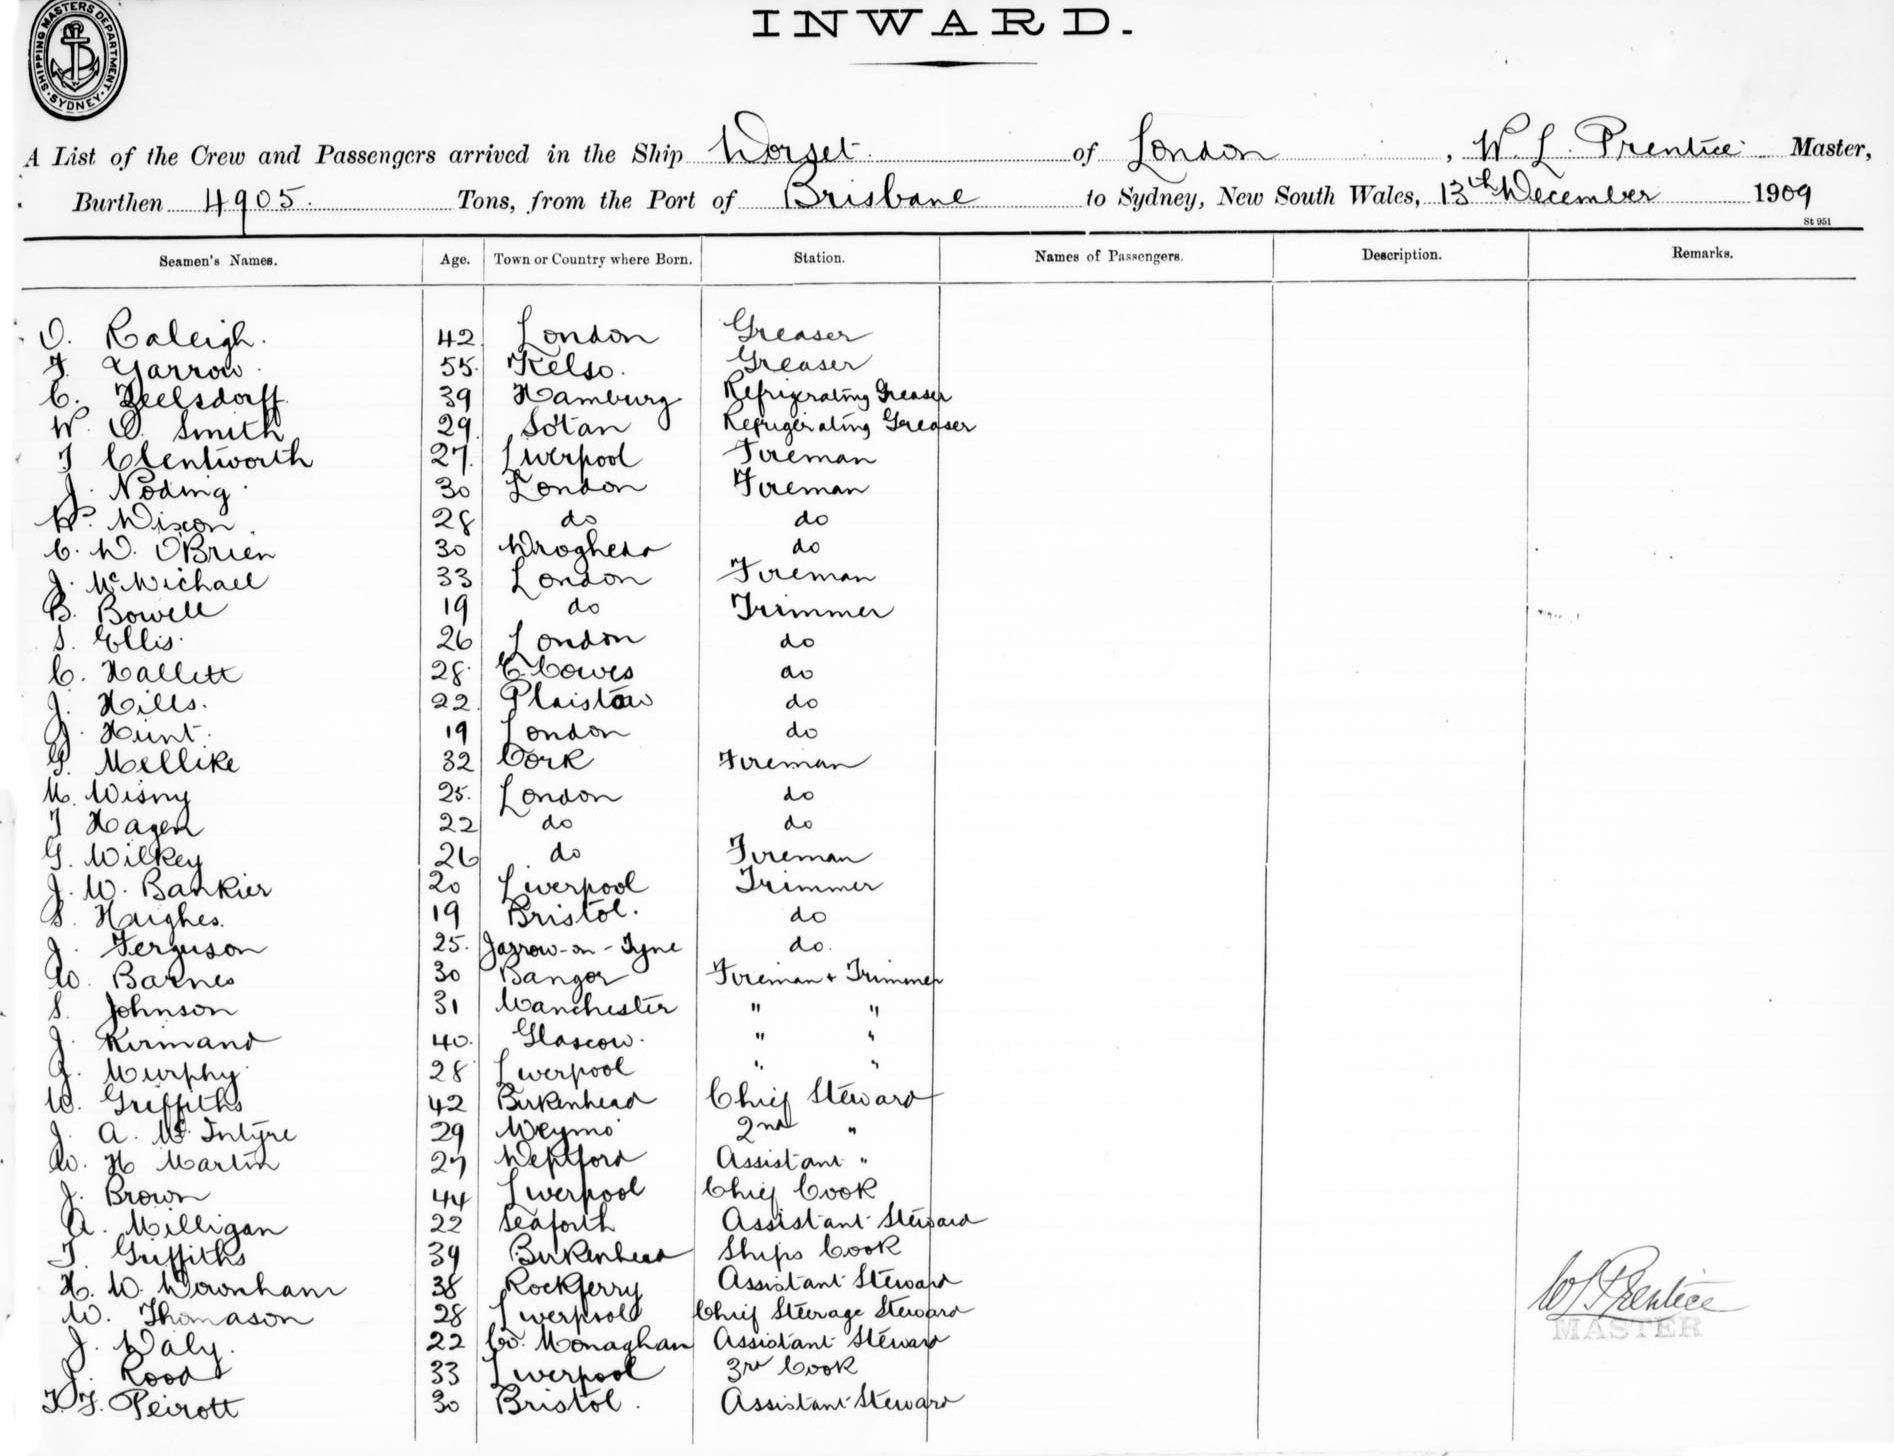 SHIPPING MASTERS DEPARTMENT. SYDNEY.
INWARD.
A List of the Crew and Passengers arrived in the Ship Dorset of London, W. L. Prentice Master,
Burthen 4905. Tons, from the Port of Brisbane to Sydney, New South Wales, 13th December 1909
St 951
Seamen's Names. Age. Town or Country where Born. Station. Names of Passengers. Description. Remarks.
O. Raleigh. 42 London Greaser
F. Yarrow. 55. Kelso. Greaser
C. 39 Hamburg Refrigerating Greaser
W. O. Smith 29 Refrigerating Greaser
T Clentworth 27. Liverpool Fireman
J. Noding. 30 London Fireman
W. Dixon. 28 do do
C. W. O'Brien 30 Drogheda do
J. McMichael 33 London Fireman
B. Bowell 19 do Trimmer
S. Ellis. 26 London do
C. Hallett 28. E. Cowes do
J. Hills. 22 Plaistow do
J. Hunt. 19 London do
Mellike 32 Cork Fireman
M. Disny 25. London do
T Hagen 22 do do
G. Wilkey 26 do Fireman
J. W. Bankier 20 Liverpool Trimmer
S. Hughes. 19 Bristol. do
J. Ferguson 25. Jarrow-on-Tyne do.
W. Barnes 30 Bangor Fireman + Trimmer
S. Johnson 31 Manchester " "
J. Kirmand 40. Glascow. " "
J. Murphy. 28 Liverpool " "
W. Griffiths 42 Birkenhead Chief Steward
J. A. McIntyre 29 2nd "
W. H Martin 27 Deptford Assistant "
J. Brown 44 Liverpool Chief Cook
A. Milligan 22 Seaforth Assistant Steward
T. Griffiths 39 Birkenhead Ships Cook
H. W. Downham 38 Rockferry Assistant Steward
W. Thomason 28 Liverpool Chief Steerage Steward
J. Daly. 22 Co. Monaghan Assistant Steward
J. Rood 33 Liverpool 3rd Cook
F. Peirott 30 Bristol. Assistant Steward
W L Prentice
MASTER